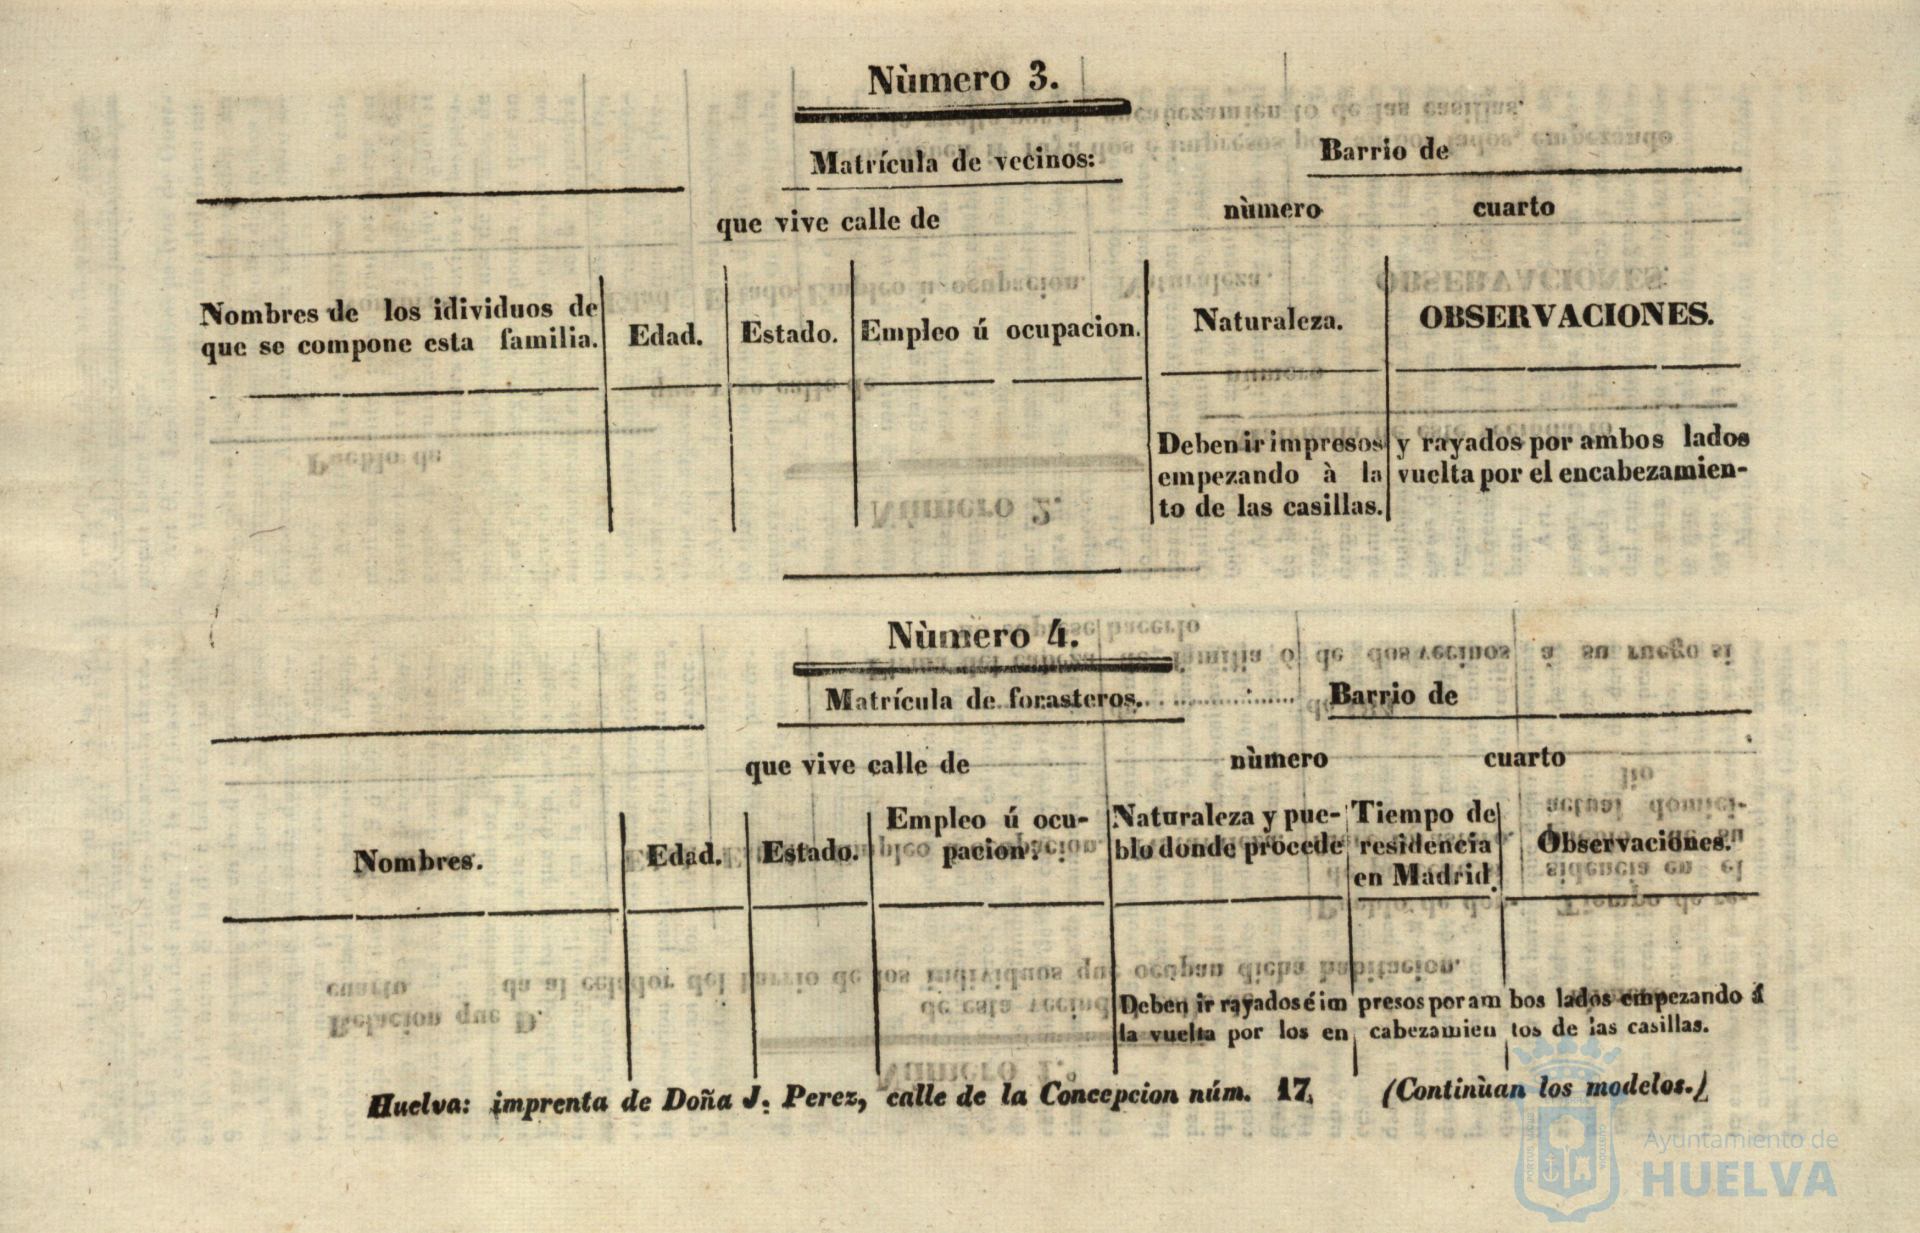 Nùmero 3.
Matrícula de vecinos: Barrio de
que vive calle de nùmero cuarto
Nombres de los idividuos de
que se compone esta familia.
Edad.
Estado.
Empleo ú ocupacion.
Naturaleza.
OBSERVACIONES.
Deben ir impresos y rayados por ambos lados
empezando à la vuelta por el encabezamien-
to de las casillas.
Nùmero 4.
Matrícula de forasteros. Barrio de
que vive calle de nùmero cuarto
Nombres.
Edad.
Estado.
Empleo ú ocu-
pacion.
Naturaleza y pue-
blo donde procede
Tiempo de
residencia
en Madrid.
Observaciones.
Deben ir rayados é im presos por am bos lados empezando á
la vuelta por los en cabezamien tos de las casillas.
Huelva: imprenta de Doña J. Perez, calle de la Concepcion núm. 17. (Continùan los modelos.)
Ayuntamiento de
HUELVA